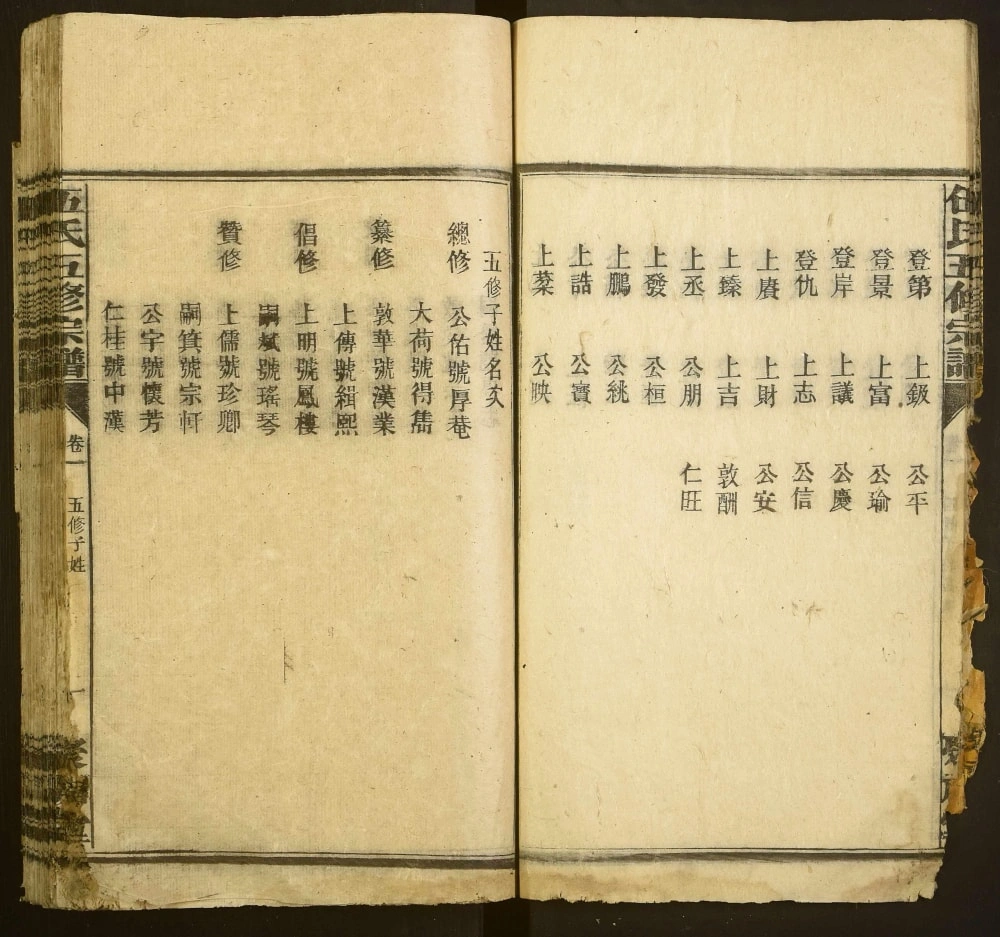 伍氏五修宗譜
登第 上鈒 公平
登景 上富 公瑜
登岸 上議 公慶
登仇 上志 公信
上賡 上財 公安
上臻 上吉 敦酬
上丞 公朋 仁旺
上發 公桓
上鵬 公銚
上誥 公寶
上菜 公映
五修子姓名文
總修 公佑號厚菴
大荷號得雋
纂修 敦華號漢業
上傳號緝熙
倡修 上明號鳳樓
嗣斌號瑤琴
贊修 上儒號珍卿
嗣箕號宗軒
公宇號懷芳
仁桂號中漢
伍氏五修宗譜
卷一
五修子姓